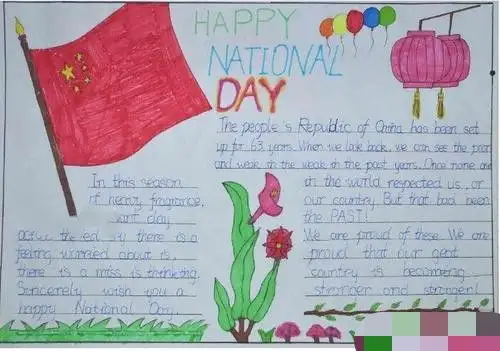 HAPPY
NATIONAL
DAY
The people's Republic of China has been set
up for 63 years. When we look back, we can see the poor
and weak in the weak in the past years. Once none one
in the world respected us, or
our country. But that had been
the PAST!
We are proud of these. We are
proud that our gent
country is becoming
stronger and stronger!
In this season
of fragrance,
day
there is a
feeling worried about is,
there is a miss is thinking.
Sincerely wish you a
happy National Day.